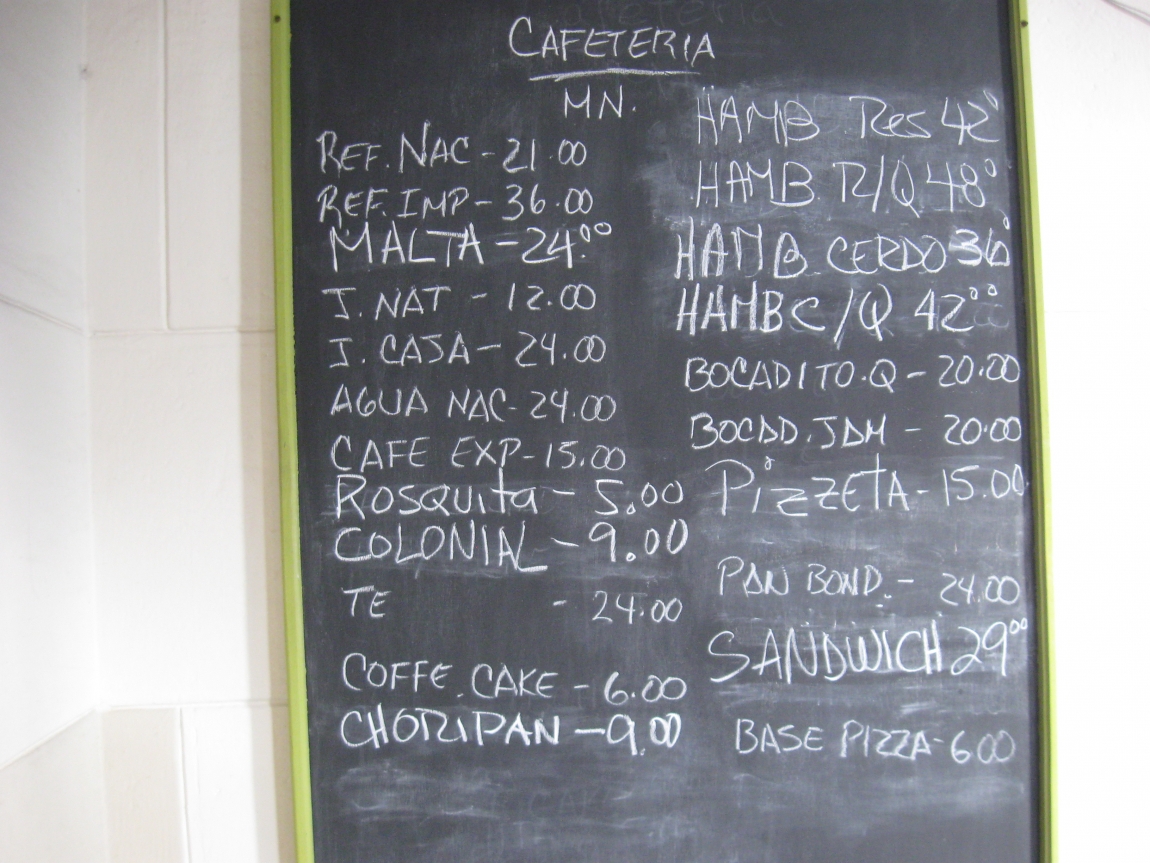 CAFETERIA
MN.
REF. NAC - 21.00
REF. IMP - 36.00
MALTA - 24.00
J. NAT - 12.00
J. CAJA - 24.00
AGUA NAC - 24.00
CAFE EXP - 15.00
ROSQUITA - 5.00
COLONIAL - 9.00
TE - 24.00
COFFE. CAKE - 6.00
CHORIPAN - 9.00
HAMB Res 42°
HAMB R/Q 48°
HAMB CERDO 36°
HAMB C/Q 42°°
BOCADITO.Q - 20.00
BOCAD. JAM - 20.00
PizzetA - 15.00
PAN BOND. - 24.00
SANDWICH 29°°
BASE PIZZA - 6.00